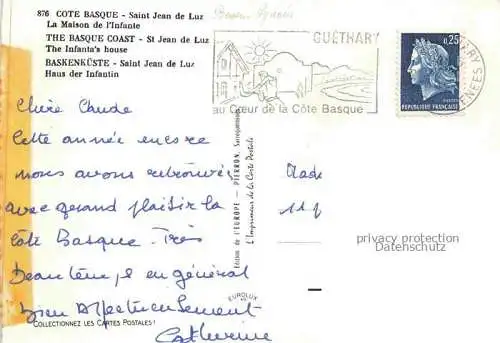 876 COTE BASQUE - Saint Jean de Luz
La Maison de l'Infante
THE BASQUE COAST - St Jean de Luz
The Infanta's house
BASKENKÜSTE - Saint Jean de Luz
Haus der Infantin
GUÉTHARY
au Cœur de la Côte Basque
0,25
REPUBLIQUE FRANÇAISE
Chère Claude
Cette année encore
nous avons retrouvé
avec grand plaisir la
côte Basque. Très
beau temps en général
bien affectueusement
Catherine
Edition de l'EUROPE - PIERRON, Sarreguemines
L'Imprimeur de la Carte Postale
EUROLUX
COLLECTIONNEZ LES CARTES POSTALES !
privacy protection
Datenschutz